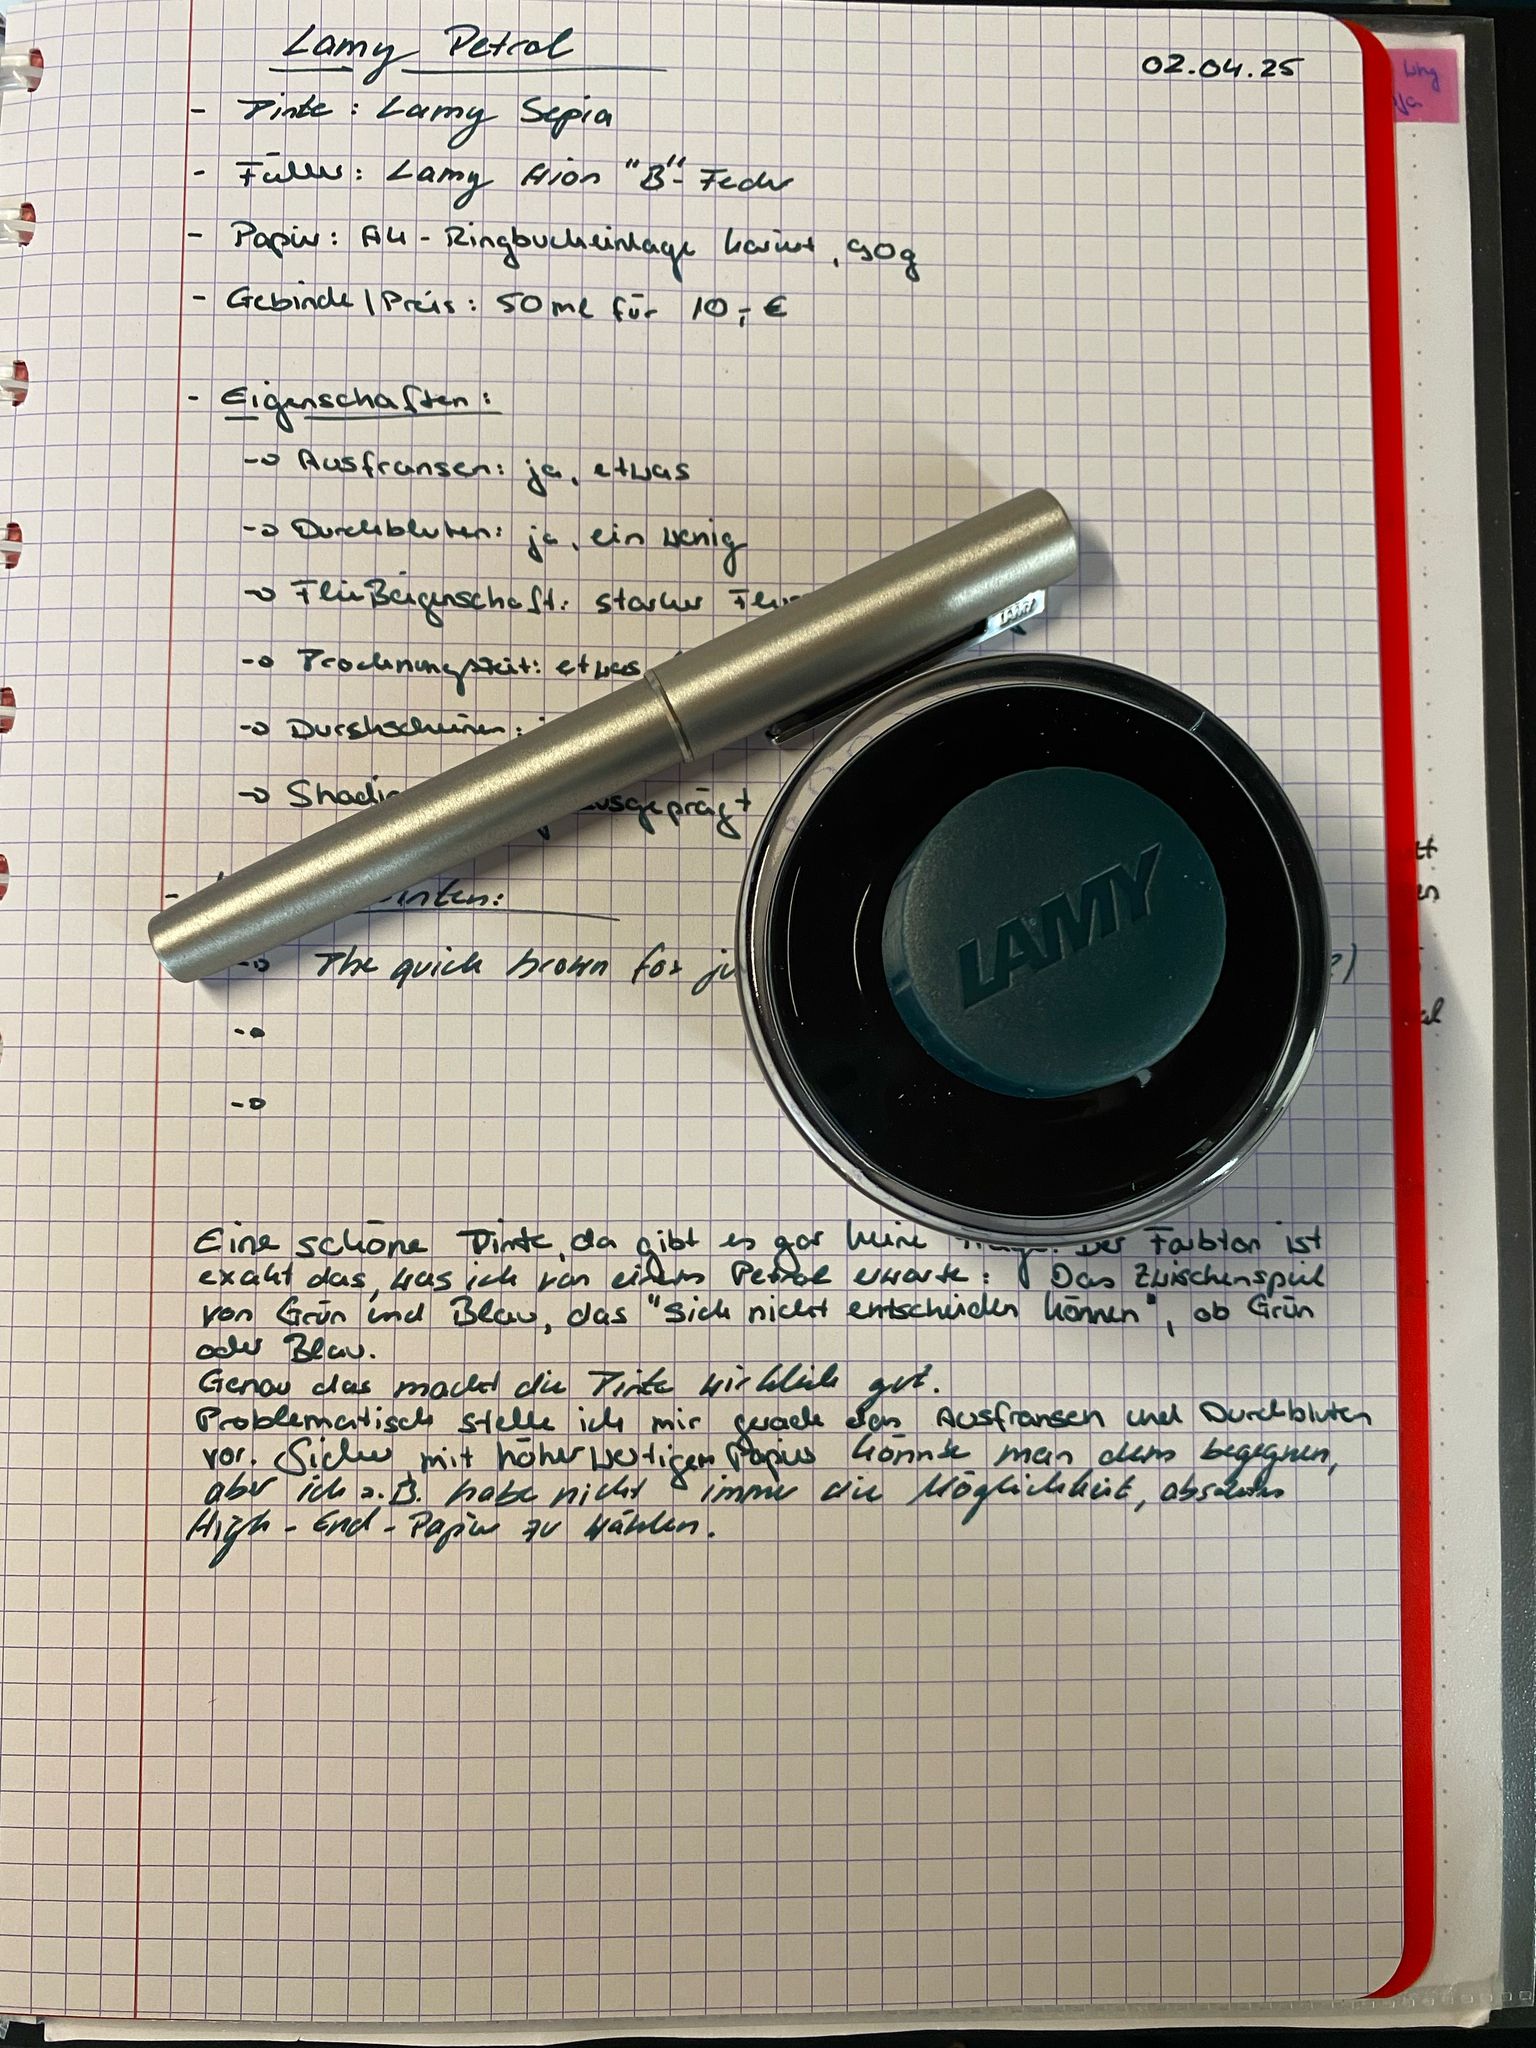 Lamy Petrol
02.04.25
- Tinte: Lamy Sepia
- Füller: Lamy Aion "B"-Feder
- Papier: A4-Ringbucheinlage kariert, 90g
- Gebinde/Preis: 50ml für 10,- €
- Eigenschaften:
→ Ausfransen: ja, etwas
→ Durchbluten: ja, ein wenig
→ Fließeigenschaft: starker
→ Trocknungszeit: etwas
→ Durchscheinen:
→ ausgeprägt
→ The quick brown fox
→
→
LAMY
LAMY
Eine schöne Tinte, da gibt es gar keine Frage. Der Farbton ist
exakt das, was ich von einem Petrol erwarte: Das Zwischenspiel
von Grün und Blau, das "Sich nicht entscheiden können", ob Grün
oder Blau.
Genau das macht die Tinte wirklich gut.
Problematisch stelle ich mir gerade das Ausfransen und Durchbluten
vor. Sicher mit höherwertigem Papier könnte man dem begegnen,
aber ich z.B. habe nicht immer die Möglichkeit, absolutes
High-End-Papier zu wählen.